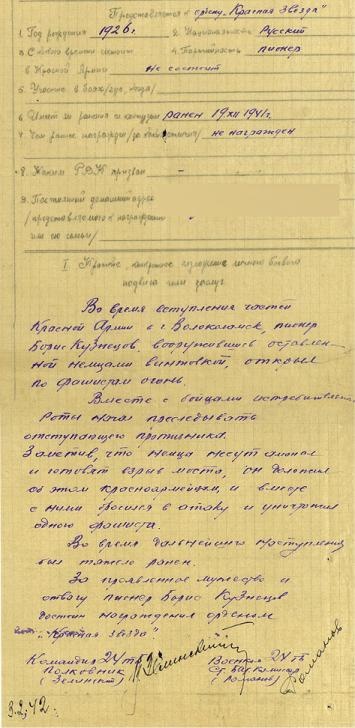 Представляется к ордену "Красная Звезда"
1. Год рождения 1926 г. 2. Национальность Русский
3. С какого времени состоит 4. Партийность пионер
в Красной Армии не состоит
5. Участие в боях /где, когда/
6. Имеет ли ранения и контузии ранен 19 XII 1941 г.
7. Чем ранее награжден /за какие отличия/ не награжден
8. Каким РВК призван —
9. Постоянный домашний адрес
/представляемого к награждению
или его семьи/
I. Краткое, конкретное изложение личного боевого
подвига или заслуг
Во время вступления частей
Красной Армии в г. Волоколамск, пионер
Борис Кузнецов, вооружившись оставлен-
ной немцами винтовкой, открыл
по фашистам огонь.
Вместе с бойцами истребительной
роты начал преследовать
отступающего противника.
Заметив, что немцы несут
и готовят взрыв моста, он доложил
об этом красноармейцам, и вместе
с ними бросился в атаку и уничтожил
одного фашиста.
Во время дальнейшего наступления
был тяжело ранен.
За проявленное мужество и
отвагу пионер Борис Кузнецов
достоин награждения орденом
"Красная звезда"
Командир 24 тб Военком 24 тб
Полковник Ст. Бат. Комиссар
(Зелинский) (Романов)
3.2.42.